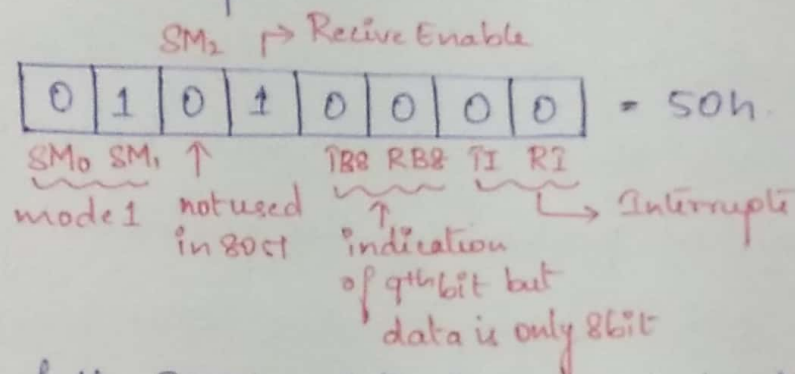 SM₂ → Recive Enable
0 1 0 1 0 0 0 0 = 50h.
SM₀ SM₁ ↑ TB8 RB8 TI RI
mode 1 not used ↑ → Interrupts
in 8051 indication
of 9th bit but
data is only 8bit